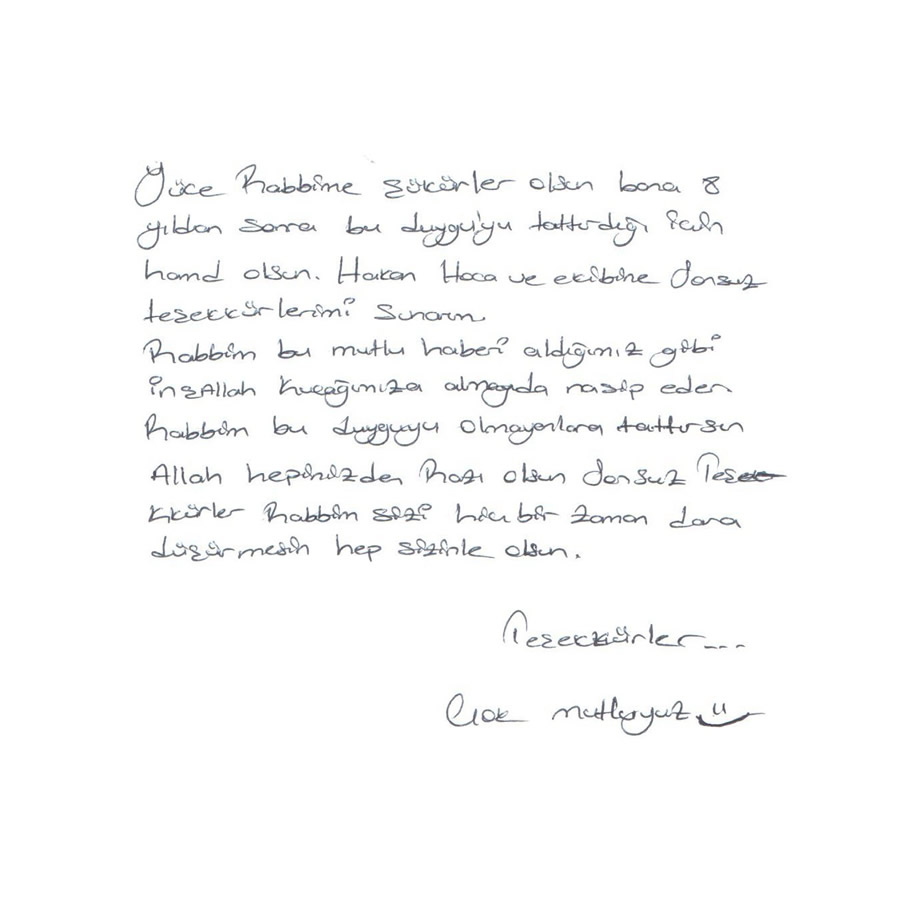 Yüce Rabbime şükürler olsun bana 8
yıldan sonra bu duygu'yu tattırdığı için
hamd olsun. Hakan Hoca ve ekibine sonsuz
teşekkürlerimi sunarım
Rabbim bu mutlu haberi aldığımız gibi
inşAllah kucağımıza almayıda nasip eder
Rabbim bu duyguyu olmayanlara tattırsın
Allah hepinizden Razı olsun sonsuz Teşe
kkürler Rabbim sizi hiçbir zaman dara
düşürmesin hep sizinle olsun.
Teşekkürler....
Çok mutluyuz